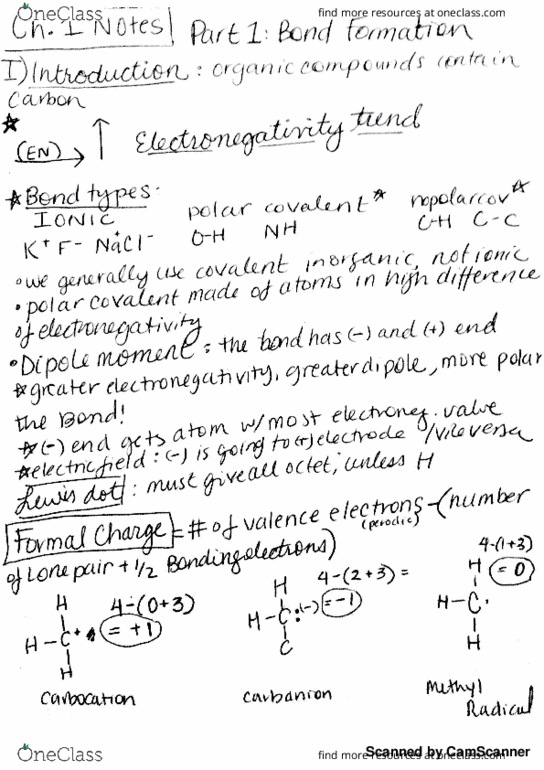 OneClass
find more resources at oneclass.com
Ch. 1 Notes
Part 1: Bond Formation
I) Introduction: organic compounds contain
carbon
(EN)
Electronegativity trend
Bond types:
IONIC
polar covalent
nopolarcov
K+ F- Na+Cl-
O-H
NH
C-H
C-C
we generally use covalent in organic, not ionic
polar covalent made of atoms in high difference
of electronegativity
Dipole moment: the bond has (-) and (+) end
greater electronegativity, greater dipole, more polar
the Bond!
(-) end gets atom w/most electroneg. value
electric field: (-) is going to (+) electrode / vice versa
Lewis dot: must give all octet, unless H
Formal Charge = # of valence electrons - (number
(periodic)
of Lone pair + 1/2 Bonding electrons)
H
4-(0+3)
= +1
H-C+
H
carbocation
H
4-(2+3) =
-1
H-C:(-)
C
carbanion
4-(1+3)
= 0
H
H-C·
H
Methyl
Radical
OneClass
find more resources at oneclass.com
Scanned by CamScanner